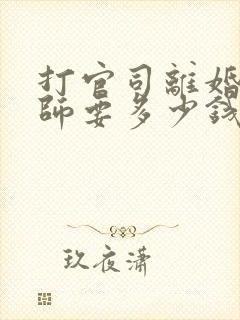 打官司離婚
師要多少錢
玖夜瀟